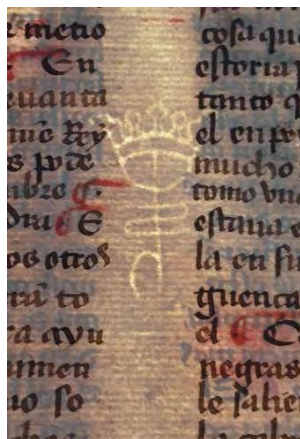 metio
¶ En
uanta
Rey
s pode
bre ¶
dra ¶ E
os otros
to
ra ayu
umen
so
cosa qu
estoria
tanto q
el en pe
mucho
como vn
estaua e
la en su
guenca
el ¶ C
negras
le salie